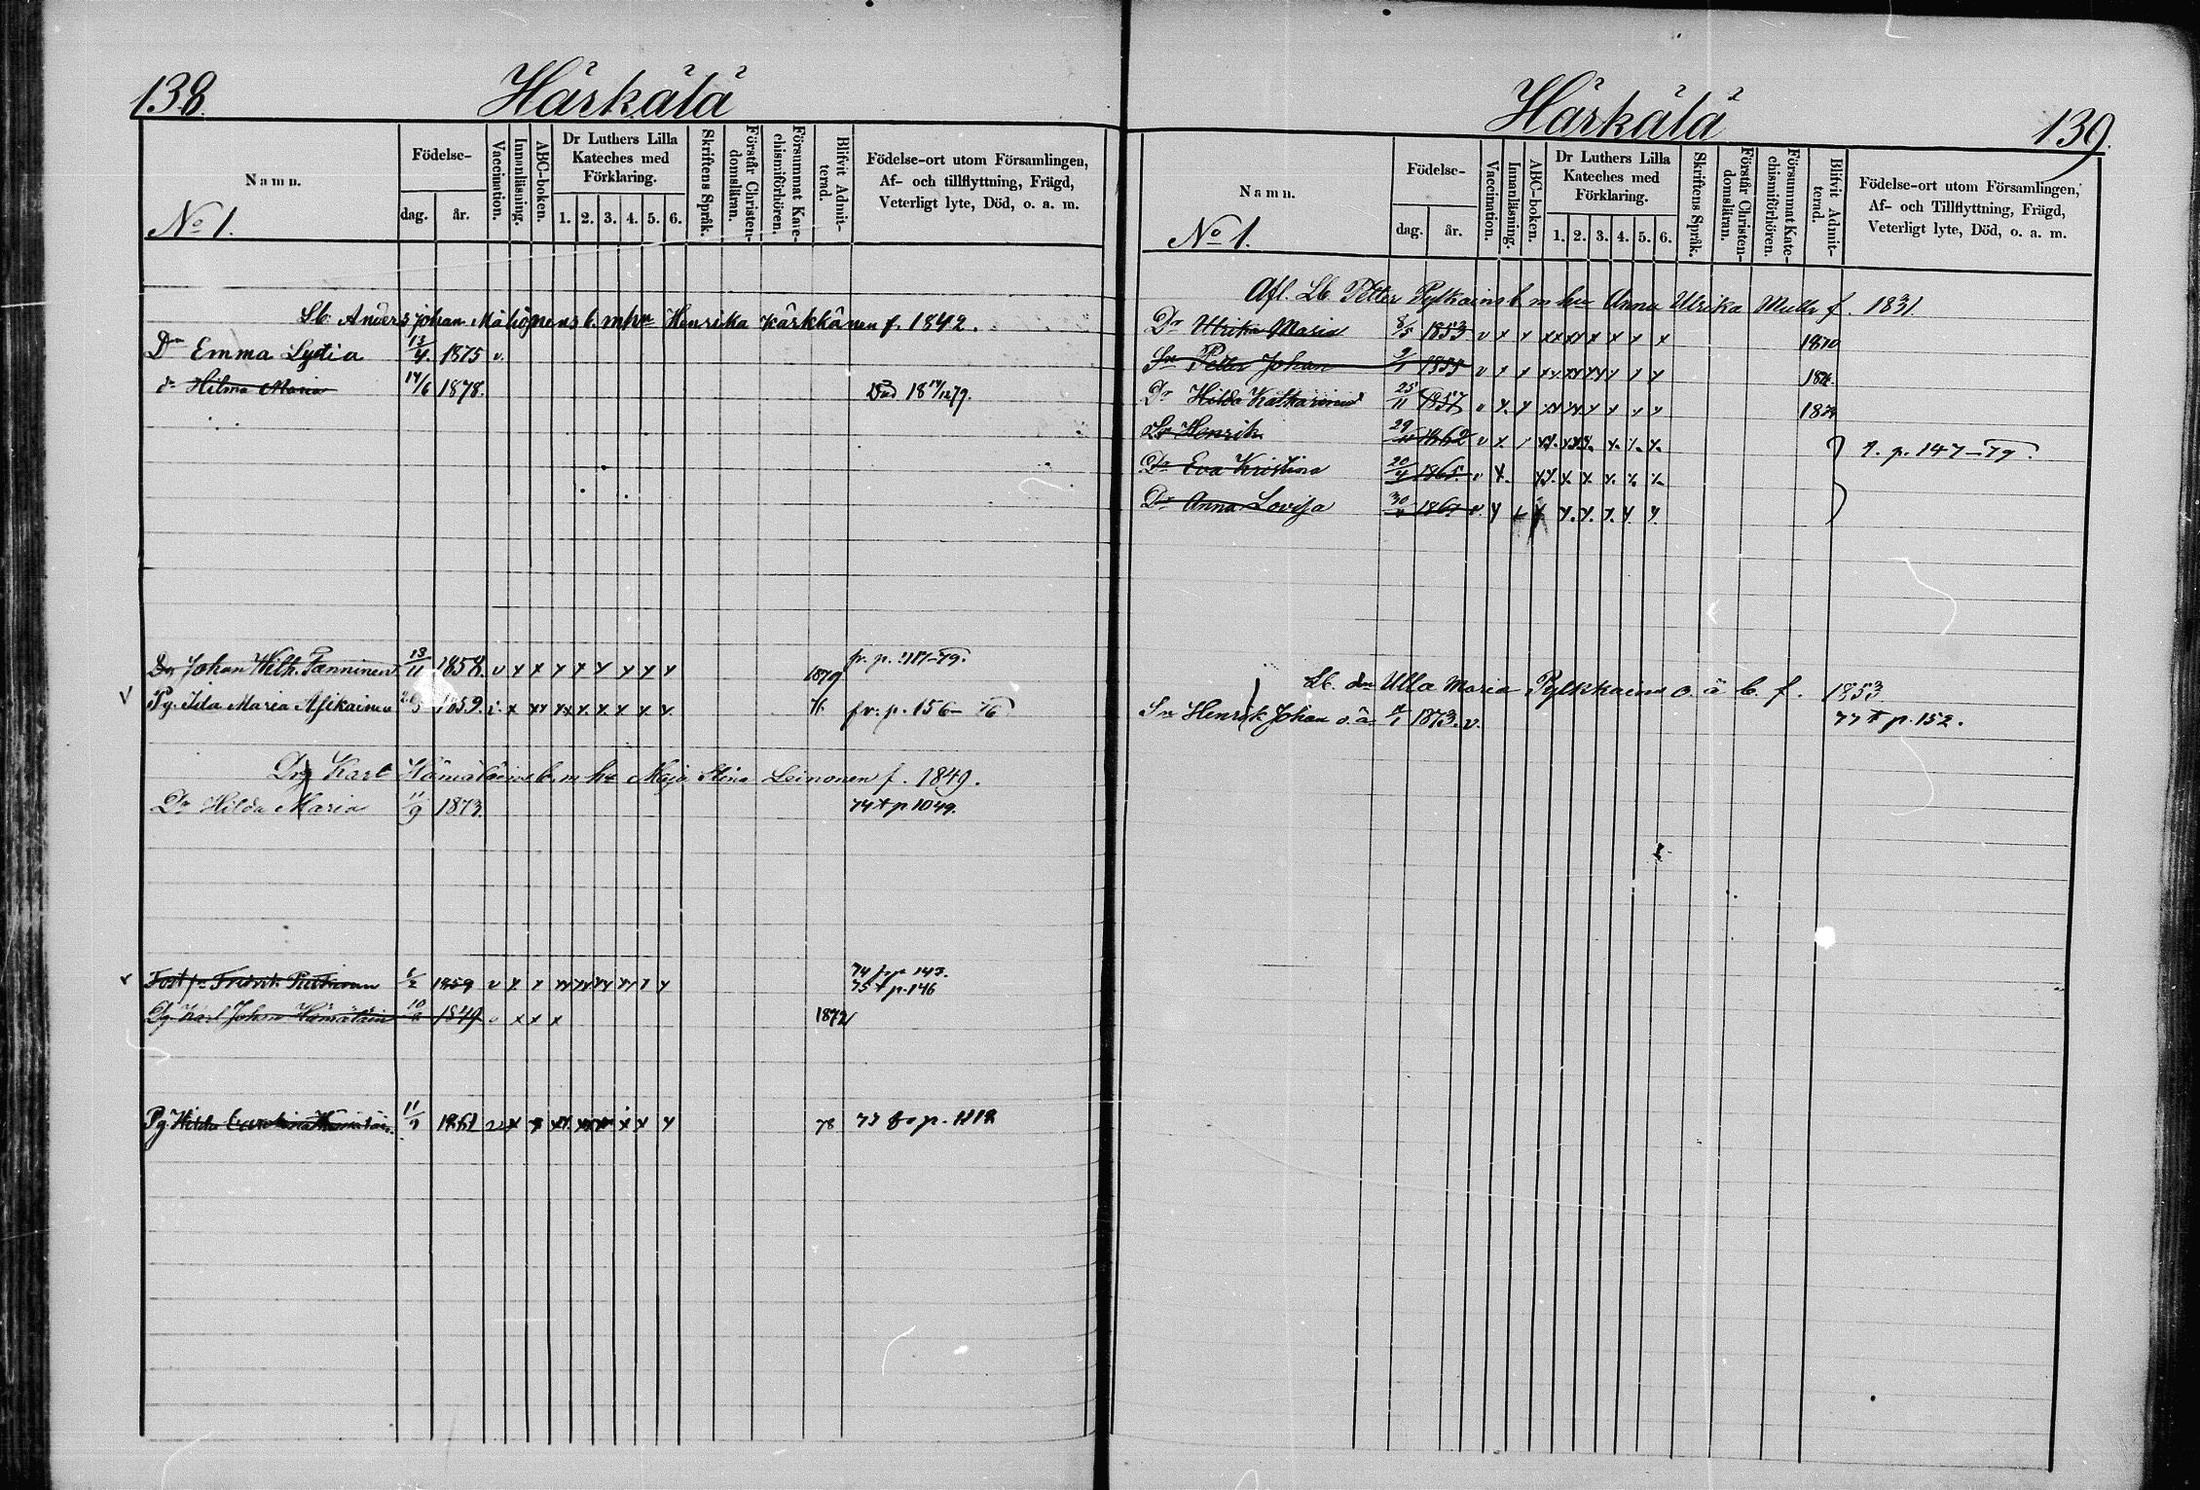 138.
Härkälä
Namn.
Födelse-
dag. år.
Vaccination.
Innanläsning.
ABC-boken.
Dr Luthers Lilla Kateches med Förklaring.
1. 2. 3. 4. 5. 6.
Skriftens Språk.
Förstår Christendomsläran.
Försummat Katechismiförhören.
Blifvit Admitterad.
Födelse-ort utom Församlingen,
Af- och tillflyttning, Frägd,
Veterligt lyte, Död, o. a. m.
No 1.
Lb. Anders Johan Möhönens b. m hu Henrika Kärkkänen f. 1842.
Dr Emma Lydia 13/4 1875 v.
dr Hilma Maria 14/6 1878. Död
Johan Wilh. 13/11 1858. v x x x x x x x x 1879
Pg. Ida Maria Asikainen 1859. v. x xx xx x x x x x. 76. fr. p. 156-76
Drg Karl Hämäläins b. m hu Maja Stina Leinonen f. 1849.
Dr Hilda Maria 11/9 1873. 74 t p 1049.
Fredrik 1/2 1859 v x x xx xx xx xx x x 74 fr p 143.
75 t p. 146
Dg. Karl Johan Hämäläin 10/6 1849 v x x x 1872
Pg Hilda Carolina 11/1 1861 78
139.
Härkälä
Namn.
Födelse-
dag. år.
Vaccination.
Innanläsning.
ABC-boken.
Dr Luthers Lilla Kateches med Förklaring.
1. 2. 3. 4. 5. 6.
Skriftens Språk.
Förstår Christendomsläran.
Försummat Katechismiförhören.
Blifvit Admitterad.
Födelse-ort utom Församlingen,
Af- och Tillflyttning, Frägd,
Veterligt lyte, Död, o. a. m.
No 1.
Afl. Lb. Petter Pylkäins b m hu Anna Ulrika Muller f. 1831.
Dr Ulrika Maria 8/5 1853 v x x xx xx x x x x 1870
Sn Petter Johan 9/1 1855 v x x xx xx xx x x x
Dr Hilda Katharina 25/11 1857 v x. x xx xx x x x x
Sn Henrik 29/11 1862 v x.
Dr Eva Kristina 20/4 1865. v x. t. p. 147-79.
Dr Anna Lovisa 1867 v. x
Lb. dr Ulla Maria Pylkkäins o. ä b. f. 1853
Sn Henrik Johan o. ä. 1873. v. 77 t p. 152.